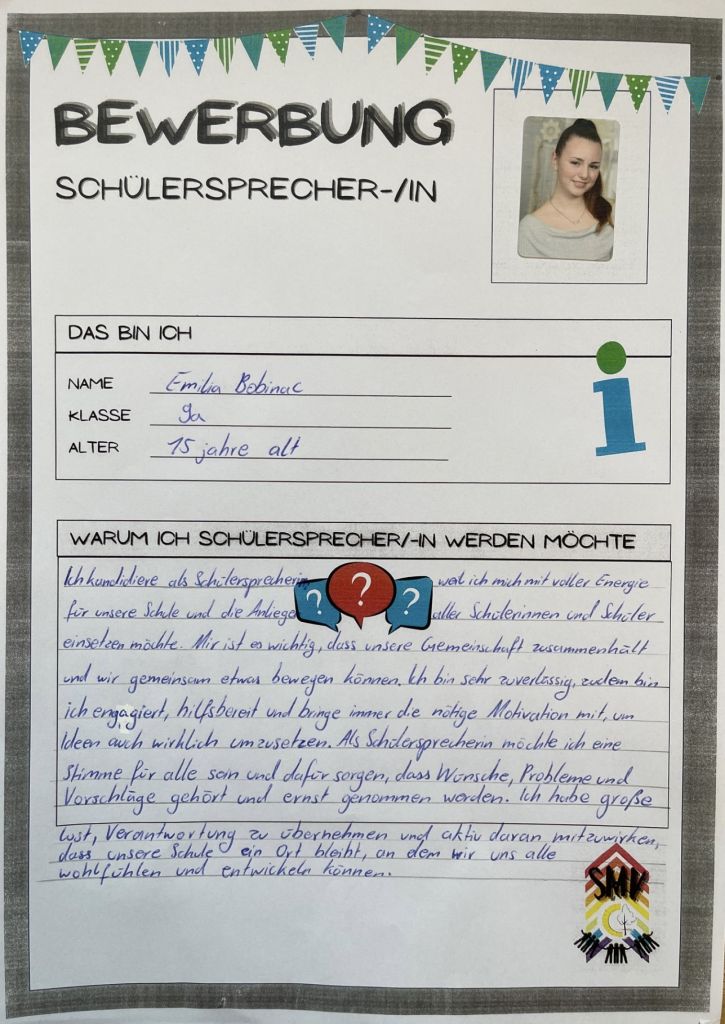 BEWERBUNG
SCHÜLERSPRECHER-/IN
DAS BIN ICH
NAME Emilia Bobinac
KLASSE 9a
ALTER 15 jahre alt
i
WARUM ICH SCHÜLERSPRECHER/-IN WERDEN MÖCHTE
Ich kandidiere als Schülersprecherin ? ? ? weil ich mich mit voller Energie
für unsere Schule und die Anliege aller Schülerinnen und Schüler
einsetzen möchte. Mir ist es wichtig, dass unsere Gemeinschaft zusammenhält
und wir gemeinsam etwas bewegen können. Ich bin sehr zuverlässig, zudem bin
ich engagiert, hilfsbereit und bringe immer die nötige Motivation mit, um
Ideen auch wirklich umzusetzen. Als Schülersprecherin möchte ich eine
Stimme für alle sein und dafür sorgen, dass Wünsche, Probleme und
Vorschläge gehört und ernst genommen werden. Ich habe große
Lust, Verantwortung zu übernehmen und aktiv daran mitzuwirken,
dass unsere Schule ein Ort bleibt, an dem wir uns alle
wohlfühlen und entwickeln können.
SMK